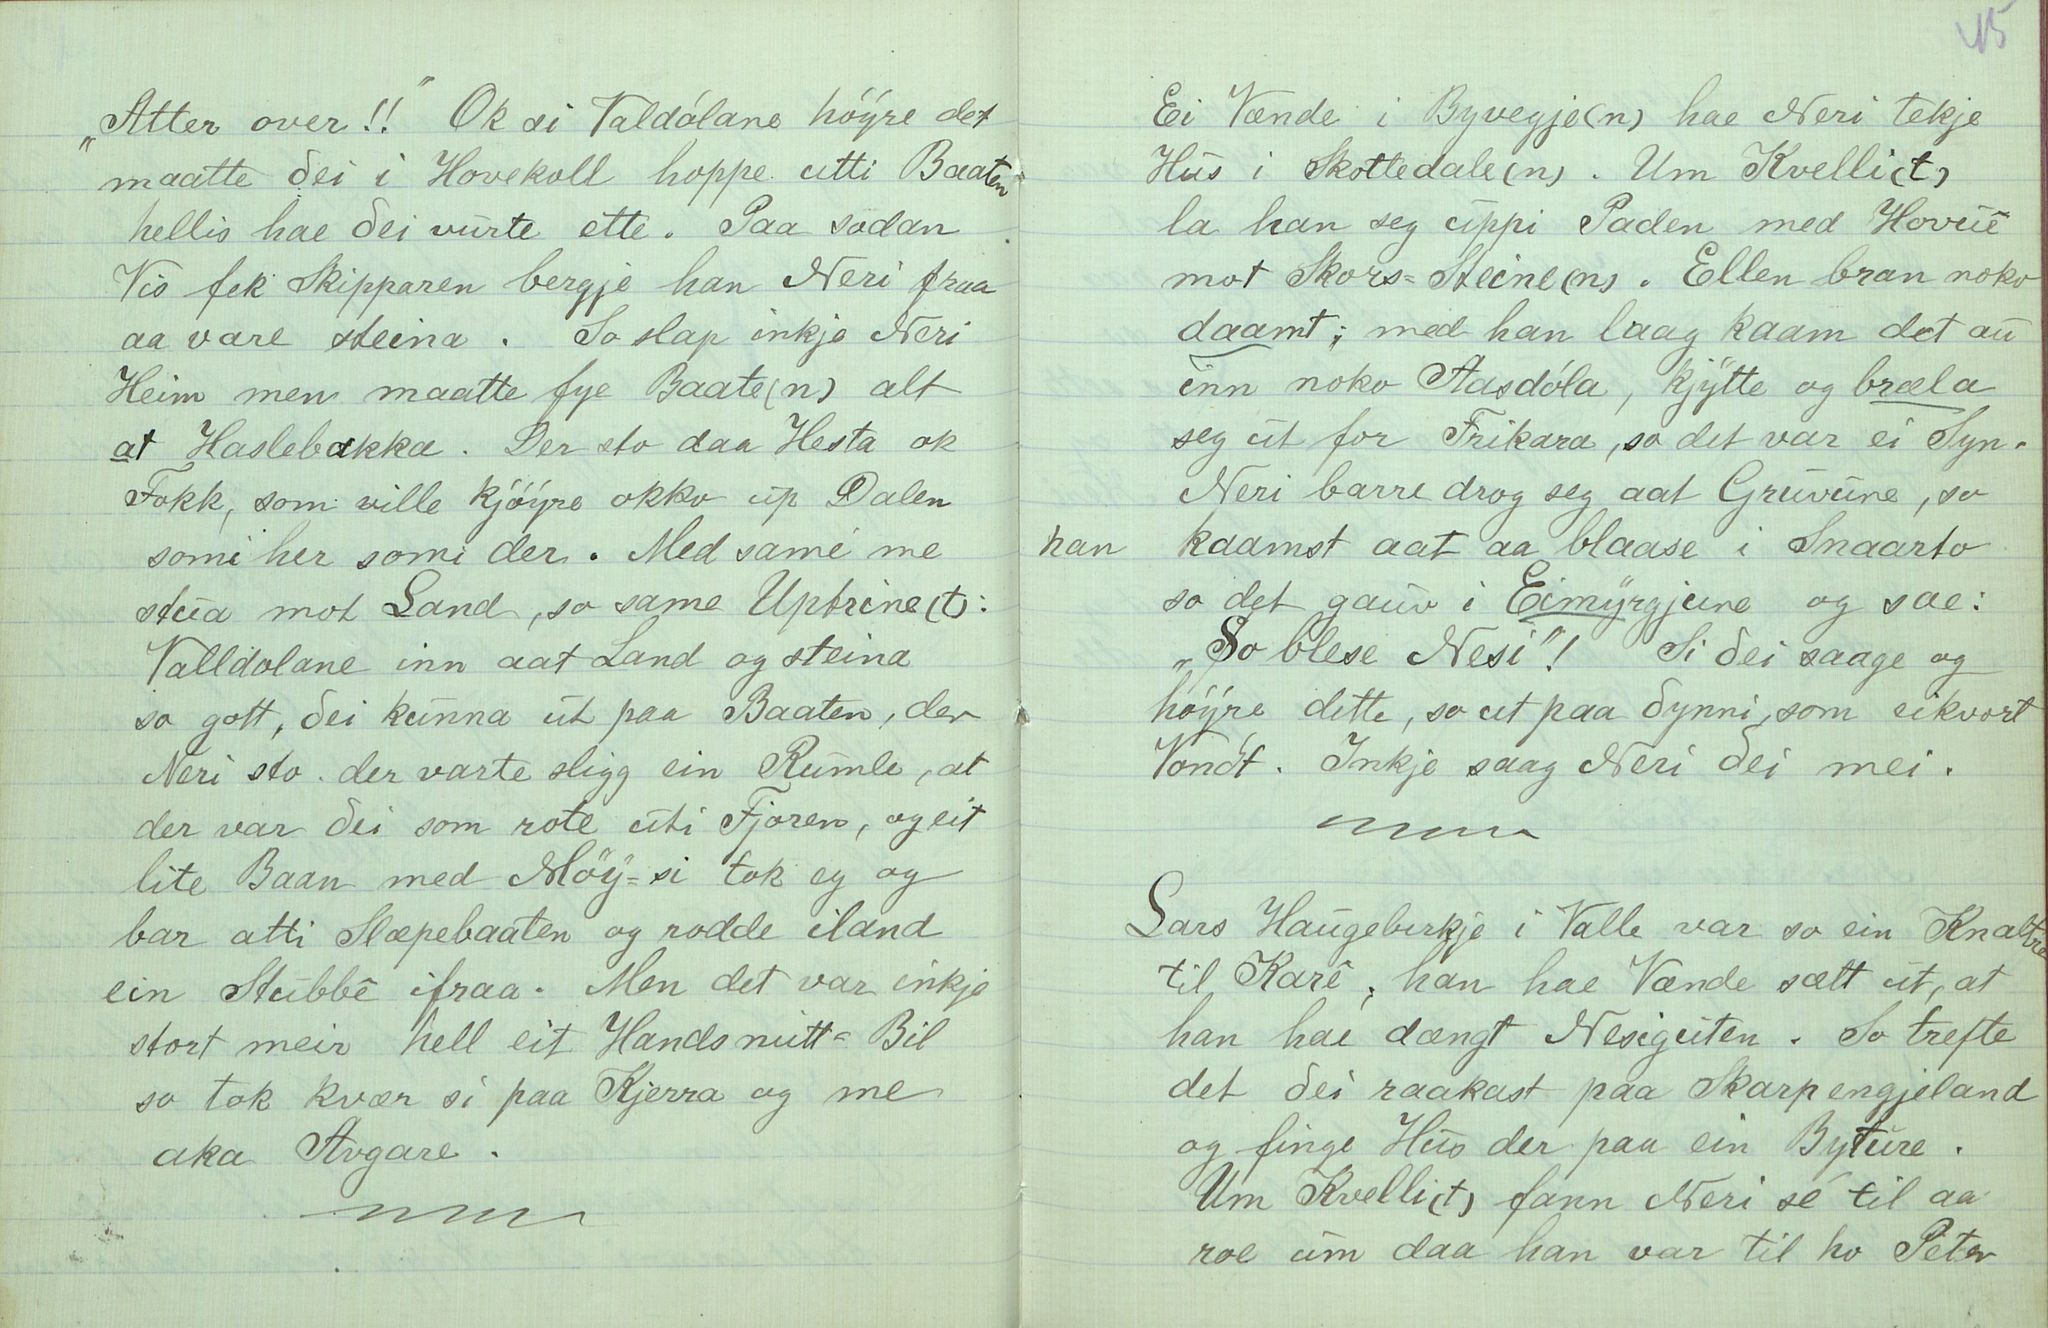 „Atter over!!" Ok si Valdólane höýre det
maatte dei i Hovekoll hoppe utti Baaten
hellis hae dei vurte ette. Paa sodan
Vis fek Skipparen bergje han Neri fraa
aa vare steina. So slap inkje Neri
Heim men maatte fye Baate(n) alt
at Haslebakka. Der sto daa Hesta ok
Fokk, som ville kjöýre okko up Dalen
somi her somi der. Med same me
stua mot Land, so same Uptrine(t):
Valldolane inn aat Land og steina
so gott, dei kunna ut paa Baaten, der
Neri sto. der varte sligg ein Rumle, at
der var dei som rote uti Fjoren, og eit
lite Baan med Möy-si tok eg og
bar atti Slæpebaaten og rodde iland
ein Stubbe ifraa. Men det var inkje
stort meir hell eit Handsnutt-Bil
so tok kvær si paa Kjerra og me
aka Avgare.
45
Ei Vænde i Byvegje(n) hae Neri tekje
Hus i Skottedale(n). Um Kvelli(t)
la han seg uppi Paden med Hovue
mot Skors-Steine(n). Ellen bran noko
daamt; med han laag kaam det au
inn noko Aasdóla, kjýtte og bræla
seg ut for Frikara, so det var ei Syn.
Neri barre drog seg aat Gruvune, so
han kaamst aat aa blaase i Snaarto
so det gauv i Eimyrgjune og sae:
„So blese Nesi"! Si dei saage og
höýre ditte, so ut paa dynni, som eikvort
Vondt. Inkje saag Neri dei mei.
Lars Haugebirkje i Valle var so ein Knaltre
til Kare, han hae Vænde sælt ut, at
han hae dængt Nesiguten. So trefte
det dei raakast paa Skarpengjeland
og finge Hus der paa ein Byture.
Um Kvelli(t) fann Neri sé til aa
roe um daa han var til ho Peter